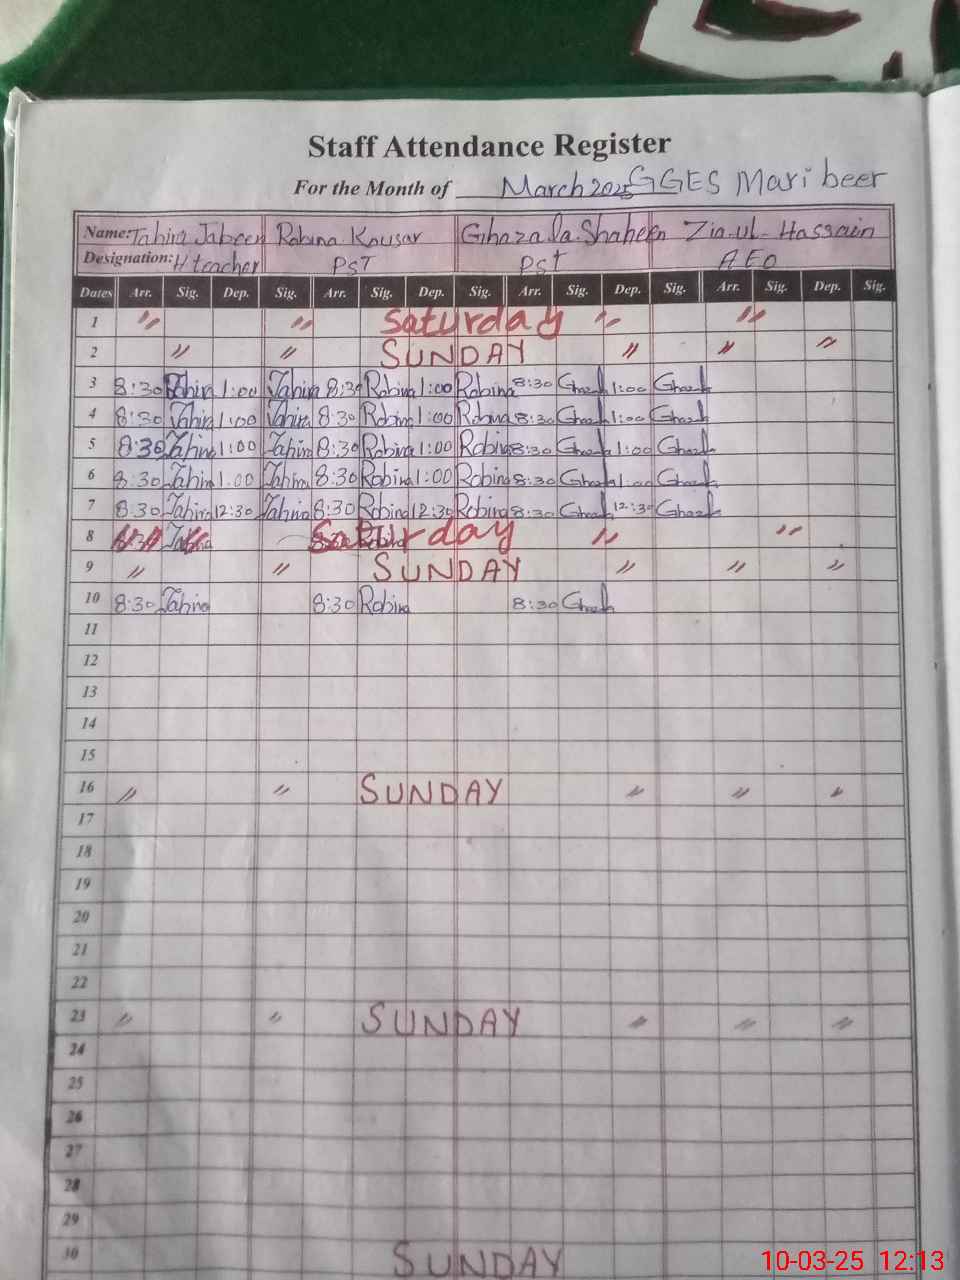 Staff Attendance Register
For the Month of March 2025 GGES Mari beer
Name: Tahira Jabeen Robina Kousar Ghazala Shaheen Zia-ul-Hassain
Designation: H teacher PST PST AEO
Dates Arr. Sig. Dep. Sig. Arr. Sig. Dep. Sig. Arr. Sig. Dep. Sig. Arr. Sig. Dep. Sig.
1 〃 〃 Saturday 〃 〃
2 〃 〃 SUNDAY 〃 〃 〃
3 8:30 Tahira 1:00 Tahira 8:30 Robina 1:00 Robina 8:30 1:00
4 8:30 Tahira 1:00 Tahira 8:30 Robina 1:00 Robina 8:30 1:00
5 8:30 Tahira 1:00 Tahira 8:30 Robina 1:00 Robina 8:30 1:00
6 8:30 Tahira 1:00 Tahira 8:30 Robina 1:00 Robina 8:30 1:00
7 8:30 Tahira 12:30 Tahira 8:30 Robina 12:30 Robina 8:30 12:30
8 Saturday 〃 〃
9 〃 〃 SUNDAY 〃 〃 〃
10 8:30 Tahira 8:30 Robina 8:30
11
12
13
14
15
16 〃 〃 SUNDAY 〃 〃 〃
17
18
19
20
21
22
23 〃 〃 SUNDAY 〃 〃 〃
24
25
26
27
28
29
30 SUNDAY
10-03-25 12:13